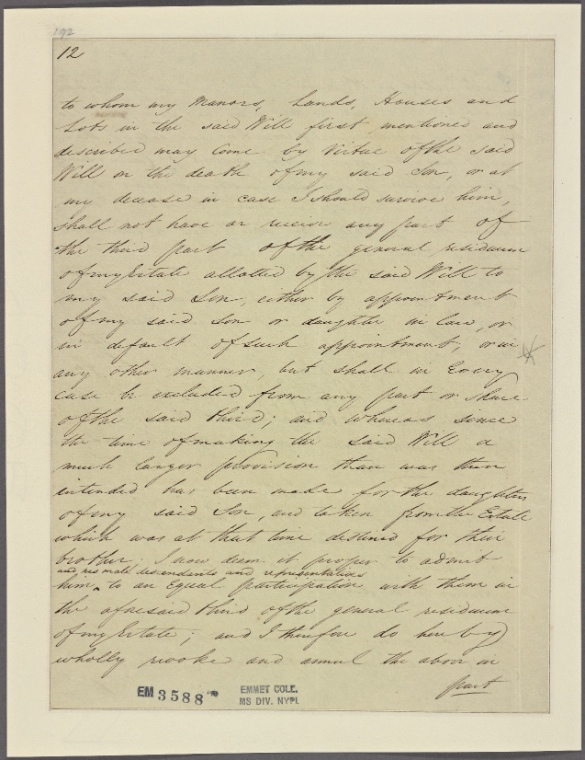 192
12
to whom my Manors, Lands, Houses and
Lots in the said Will first mentioned and
described may Come by Virtue of the said
Will on the death of my said Son, or at
my decease in case I should survive him,
shall not have or receive any part of
the third part of the general residuum
of my Estate allotted by the said Will to
my said Son, either by appointment
of my said Son or daughter in law, or
in default of such appointment, or in
any other manner, but shall in Every
case be excluded from any part or share
of the said third; and whereas since
the time of making the said Will a
much larger provision than was then
intended has been made for the daughters
of my said Son, and taken from the Estate
which was at that time destined for their
brother. I now deem it proper to admit
and his male descendants and representatives
him ^ to an Equal participation with them in
the aforesaid third of the general residuum
of my Estate; and I therefore do hereby
wholly revoke and annul the above in
part
EM 3588
EMMET COLL.
MS DIV. NYPL